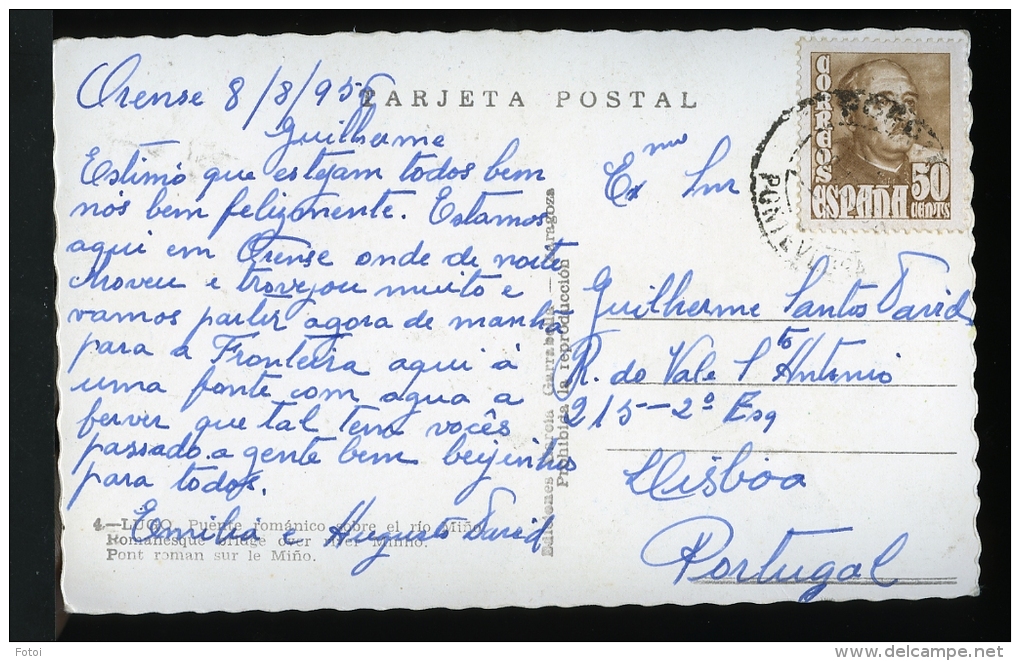 Orense 8/8/95
TARJETA POSTAL
Guilherme
Estimo que estejam todos bem
nós bem felizmente. Estamos
aqui em Orense onde de noite
choveu e trovejou muito e
vamos partir agora de manhã
para a Fronteira aqui á
uma fonte com agua a
ferver que tal tem vocês
passado a gente bem beijinhos
para todos.
Emilia e Augusto David
4.—LUGO. Puente románico sobre el río Miño.
Romanesque bridge over river Minho.
Pont roman sur le Miño.
Ediciones García Garrabella — Zaragoza
Prohibida la reproducción
CORREOS
ESPAÑA
50
CENTS
PONTEVEDRA
Exmo Snr
Guilherme Santos David
R. do Vale Sto António
215-2º Esq
Lisboa
Portugal
Fotoi
www.delcampe.net